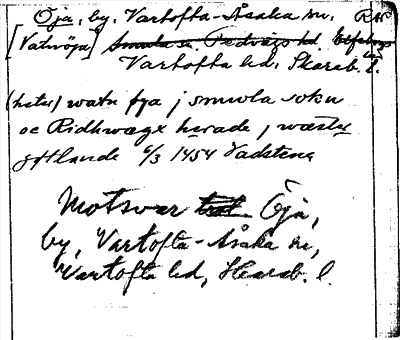 Öja, by, Vartofta-Åsaka sn. RAP
[Vatnöja] Smula sn. Redvägs hd Älfsborgs län
Vartofta hd. Skarab. l.
(heter) watn øya j smwla sokn
oc Ridhwægx hærade j wæster
gøtlande 6/3 1454 Vadstena
Motsvar trol. Öja,
by, Vartofta-Åsaka sn,
Vartofta hd, Skarab. l.